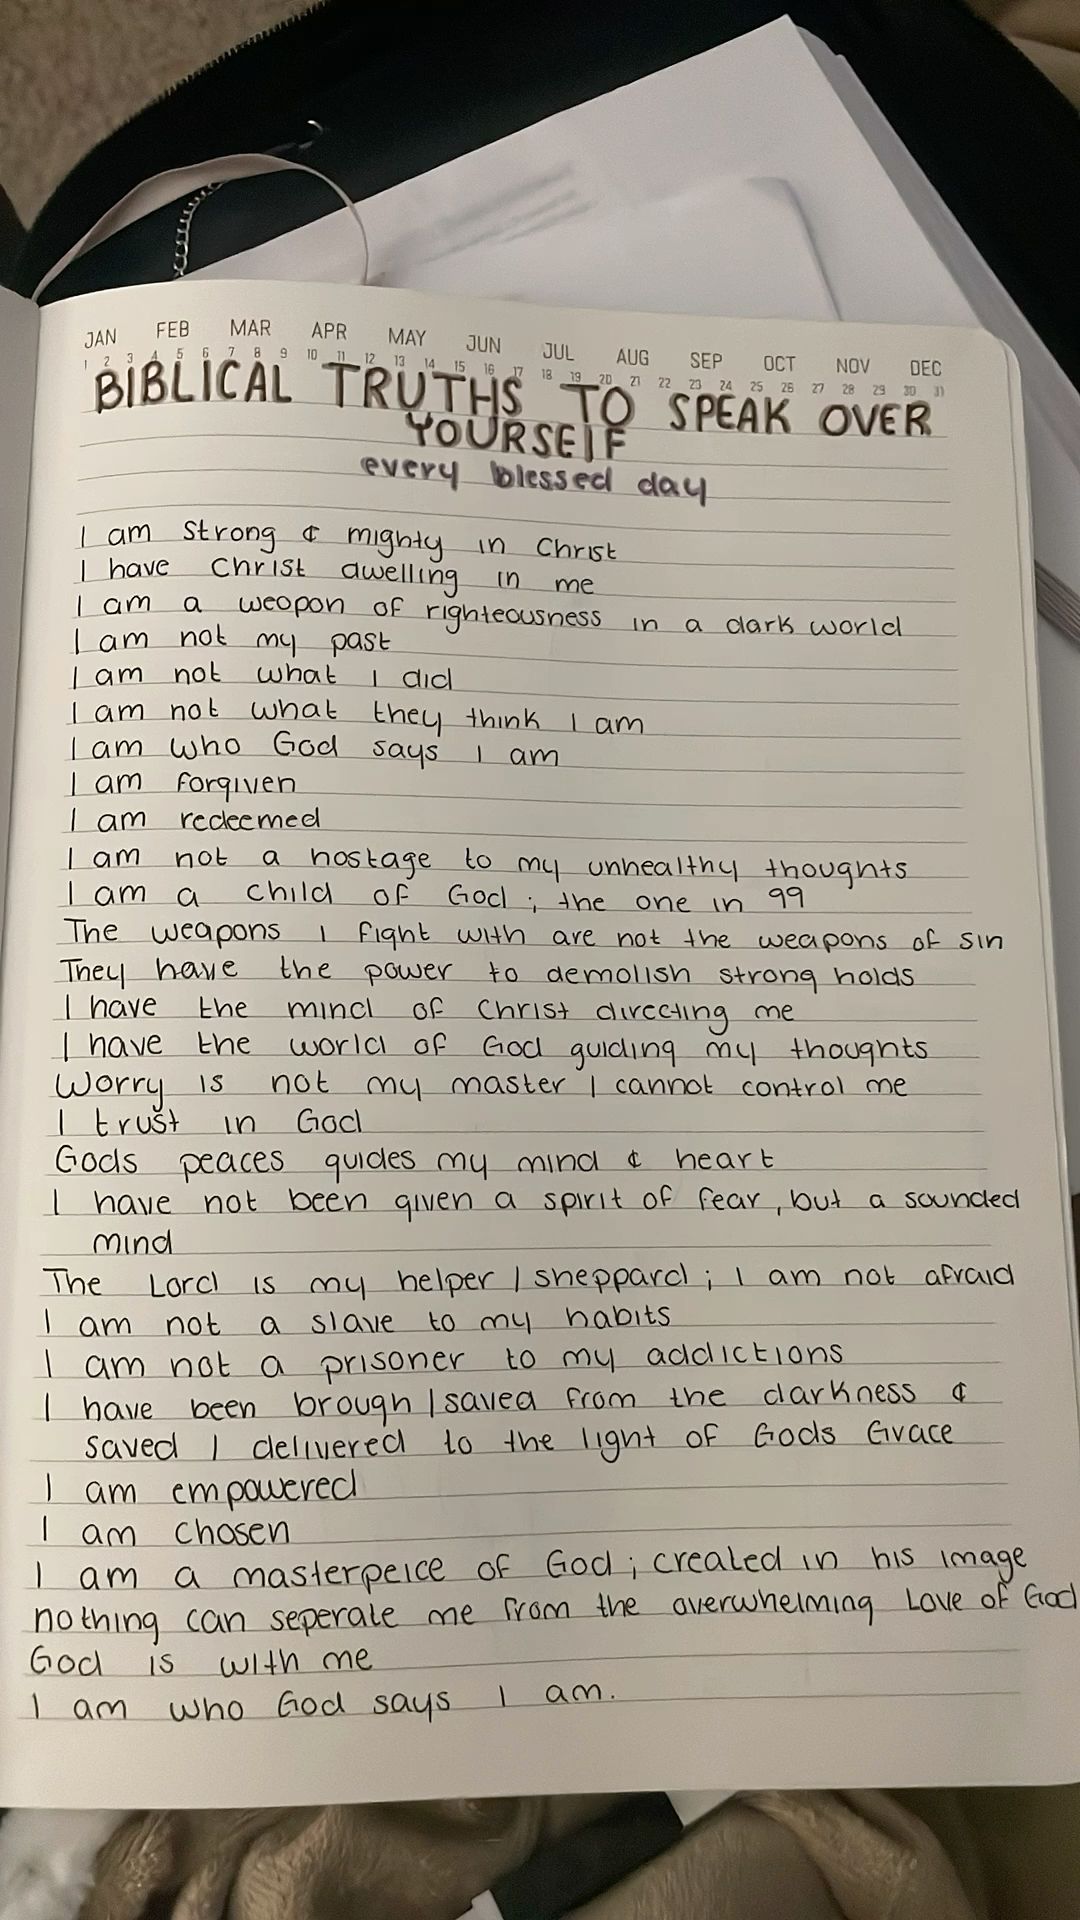 JAN FEB MAR APR MAY JUN JUL AUG SEP OCT NOV DEC
1 2 3 4 5 6 7 8 9 10 11 12 13 14 15 16 17 18 19 20 21 22 23 24 25 26 27 28 29 30 31
BIBLICAL TRUTHS TO SPEAK OVER
YOURSELF
every blessed day
I am strong & mighty in Christ
I have Christ dwelling in me
I am a weopon of righteousness in a dark world
I am not my past
I am not what I did
I am not what they think I am
I am who God says I am
I am forgiven
I am redeemed
I am not a hostage to my unhealthy thoughts
I am a child of God ; the one in 99
The weapons I fight with are not the weapons of sin
They have the power to demolish strong holds
I have the mind of Christ directing me
I have the world of God guiding my thoughts
Worry is not my master I cannot control me
I trust in God
Gods peaces guides my mind & heart
I have not been given a spirit of fear, but a sounded
mind
The Lord is my helper / sheppard ; I am not afraid
I am not a slave to my habits
I am not a prisoner to my addictions
I have been brough / saved from the darkness &
saved / delivered to the light of Gods Grace
I am empowered
I am chosen
I am a masterpeice of God ; created in his image
nothing can seperate me from the overwhelming Love of God
God is with me
I am who God says I am.